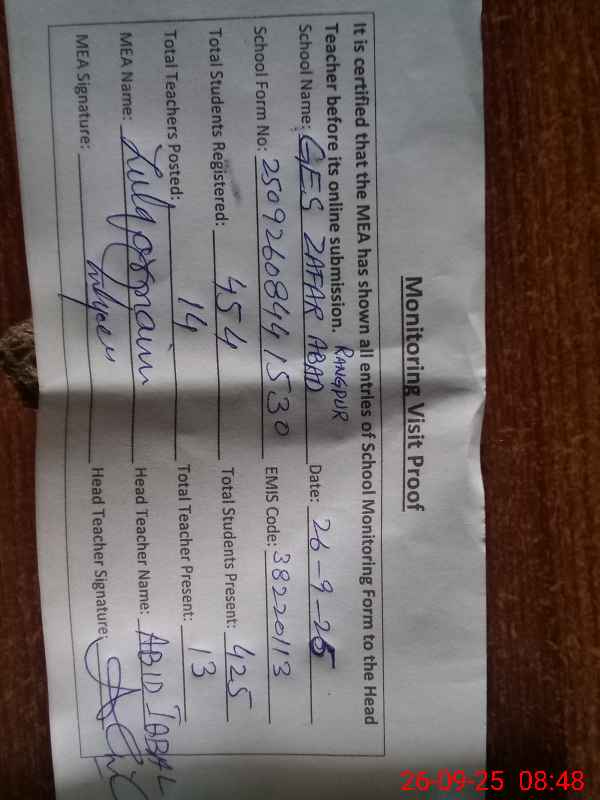 Monitoring Visit Proof
It is certified that the MEA has shown all entries of School Monitoring Form to the Head
Teacher before its online submission.
School Name: GES ZAFAR ABAD RANGPUR Date: 26-9-25
School Form No: 2509260844 1530 EMIS Code: 38220113
Total Students Registered: 454 Total Students Present: 425
Total Teachers Posted: 14 Total Teacher Present: 13
MEA Name: Zulqarnain Head Teacher Name: ABID IQBAL
MEA Signature: Head Teacher Signature:
26-09-25 08:48